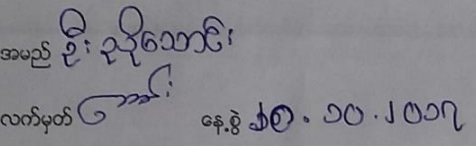 အမည် ဦး ညိုသောင်း
လက်မှတ် နေ့စွဲ ၁၀.၂၀၁၇